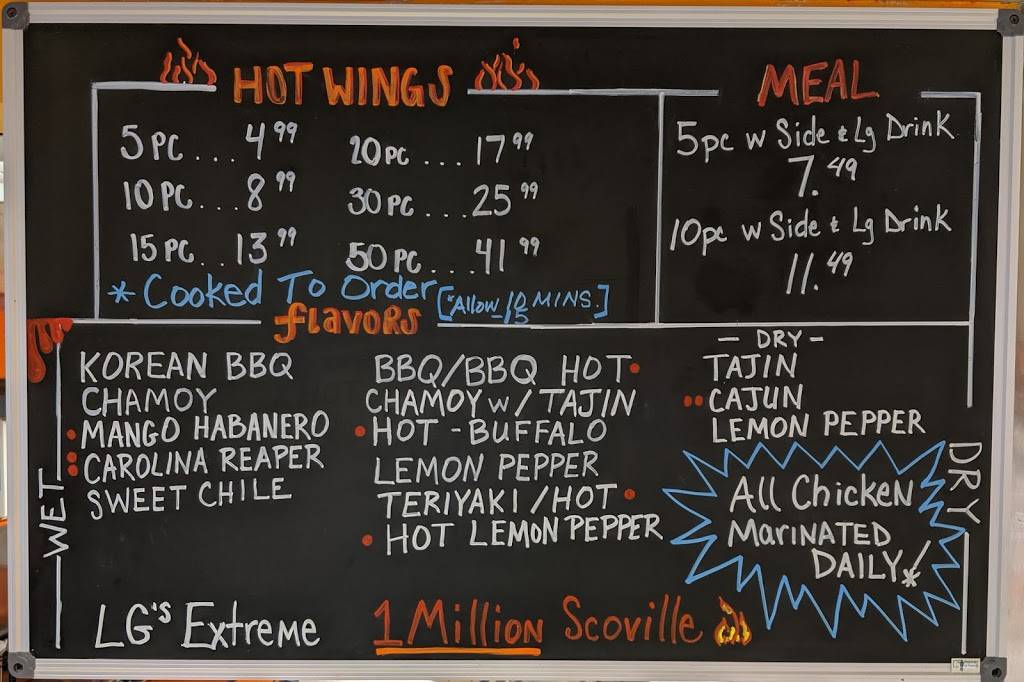 HOT WINGS
5 PC... 4.99
10 PC... 8.99
15 PC.. 13.99
20 PC.... 17.99
30 PC....25.99
50 PC...41.99
* Cooked To Order [*Allow 10/15 MINS.]
MEAL
5pc w Side & Lg Drink
7.49
10pc w Side & Lg Drink
11.49
flavors
WET
KOREAN BBQ
CHAMOY
MANGO HABANERO
CAROLINA REAPER
SWEET CHILE
BBQ/BBQ HOT
CHAMOY w/TAJIN
HOT - BUFFALO
LEMON PEPPER
TERIYAKI/HOT
HOT LEMON PEPPER
- DRY -
TAJIN
CAJUN
LEMON PEPPER
DRY
All Chicken
Marinated
DAILY!*
LG's Extreme 1 Million Scoville